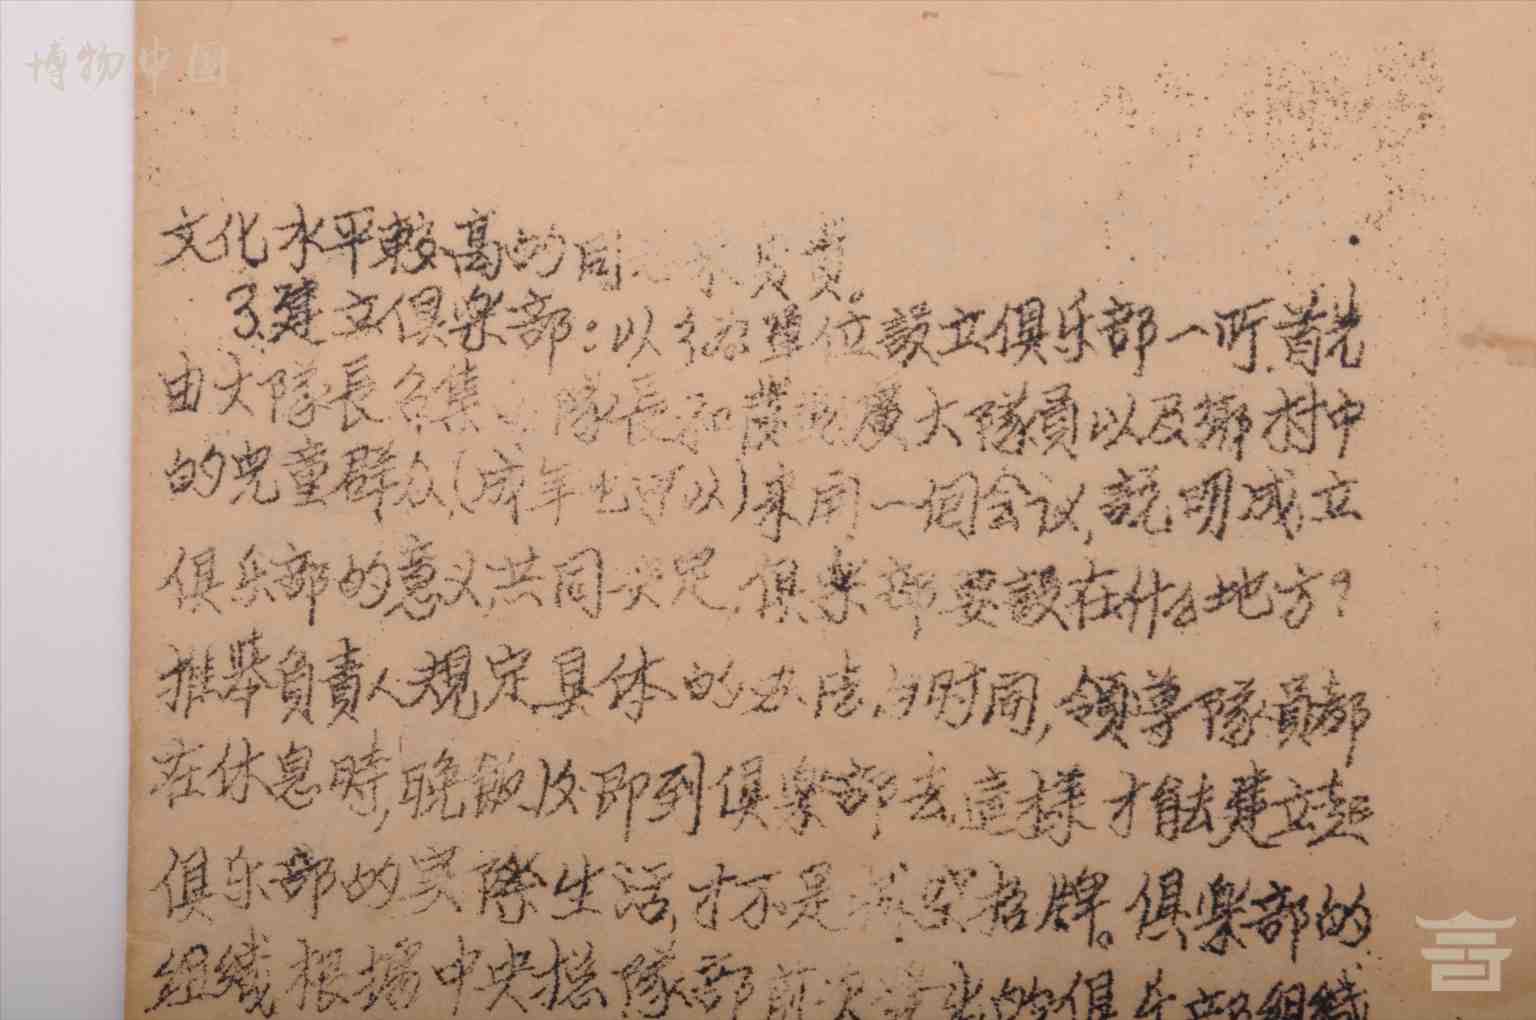 博物中国
文化水平較高的同志来负责。
3.建立俱楽部：以鄉為單位設立俱乐部一所,首先
由大隊長召集隊長和廣大隊員以及鄉村中
的兒童群众,(成年也可以)来開一個会议,説明成立
俱乐部的意义,共同决定,俱楽部要設在什么地方？
推举負責人規定具体的办法与时间,領導隊員都
在休息時,晚飯後即到俱楽部去,這樣才能建立起
俱乐部的实際生活,才不是掛空招牌。俱楽部的
組織根據中央総隊部前次發出的俱乐部組織